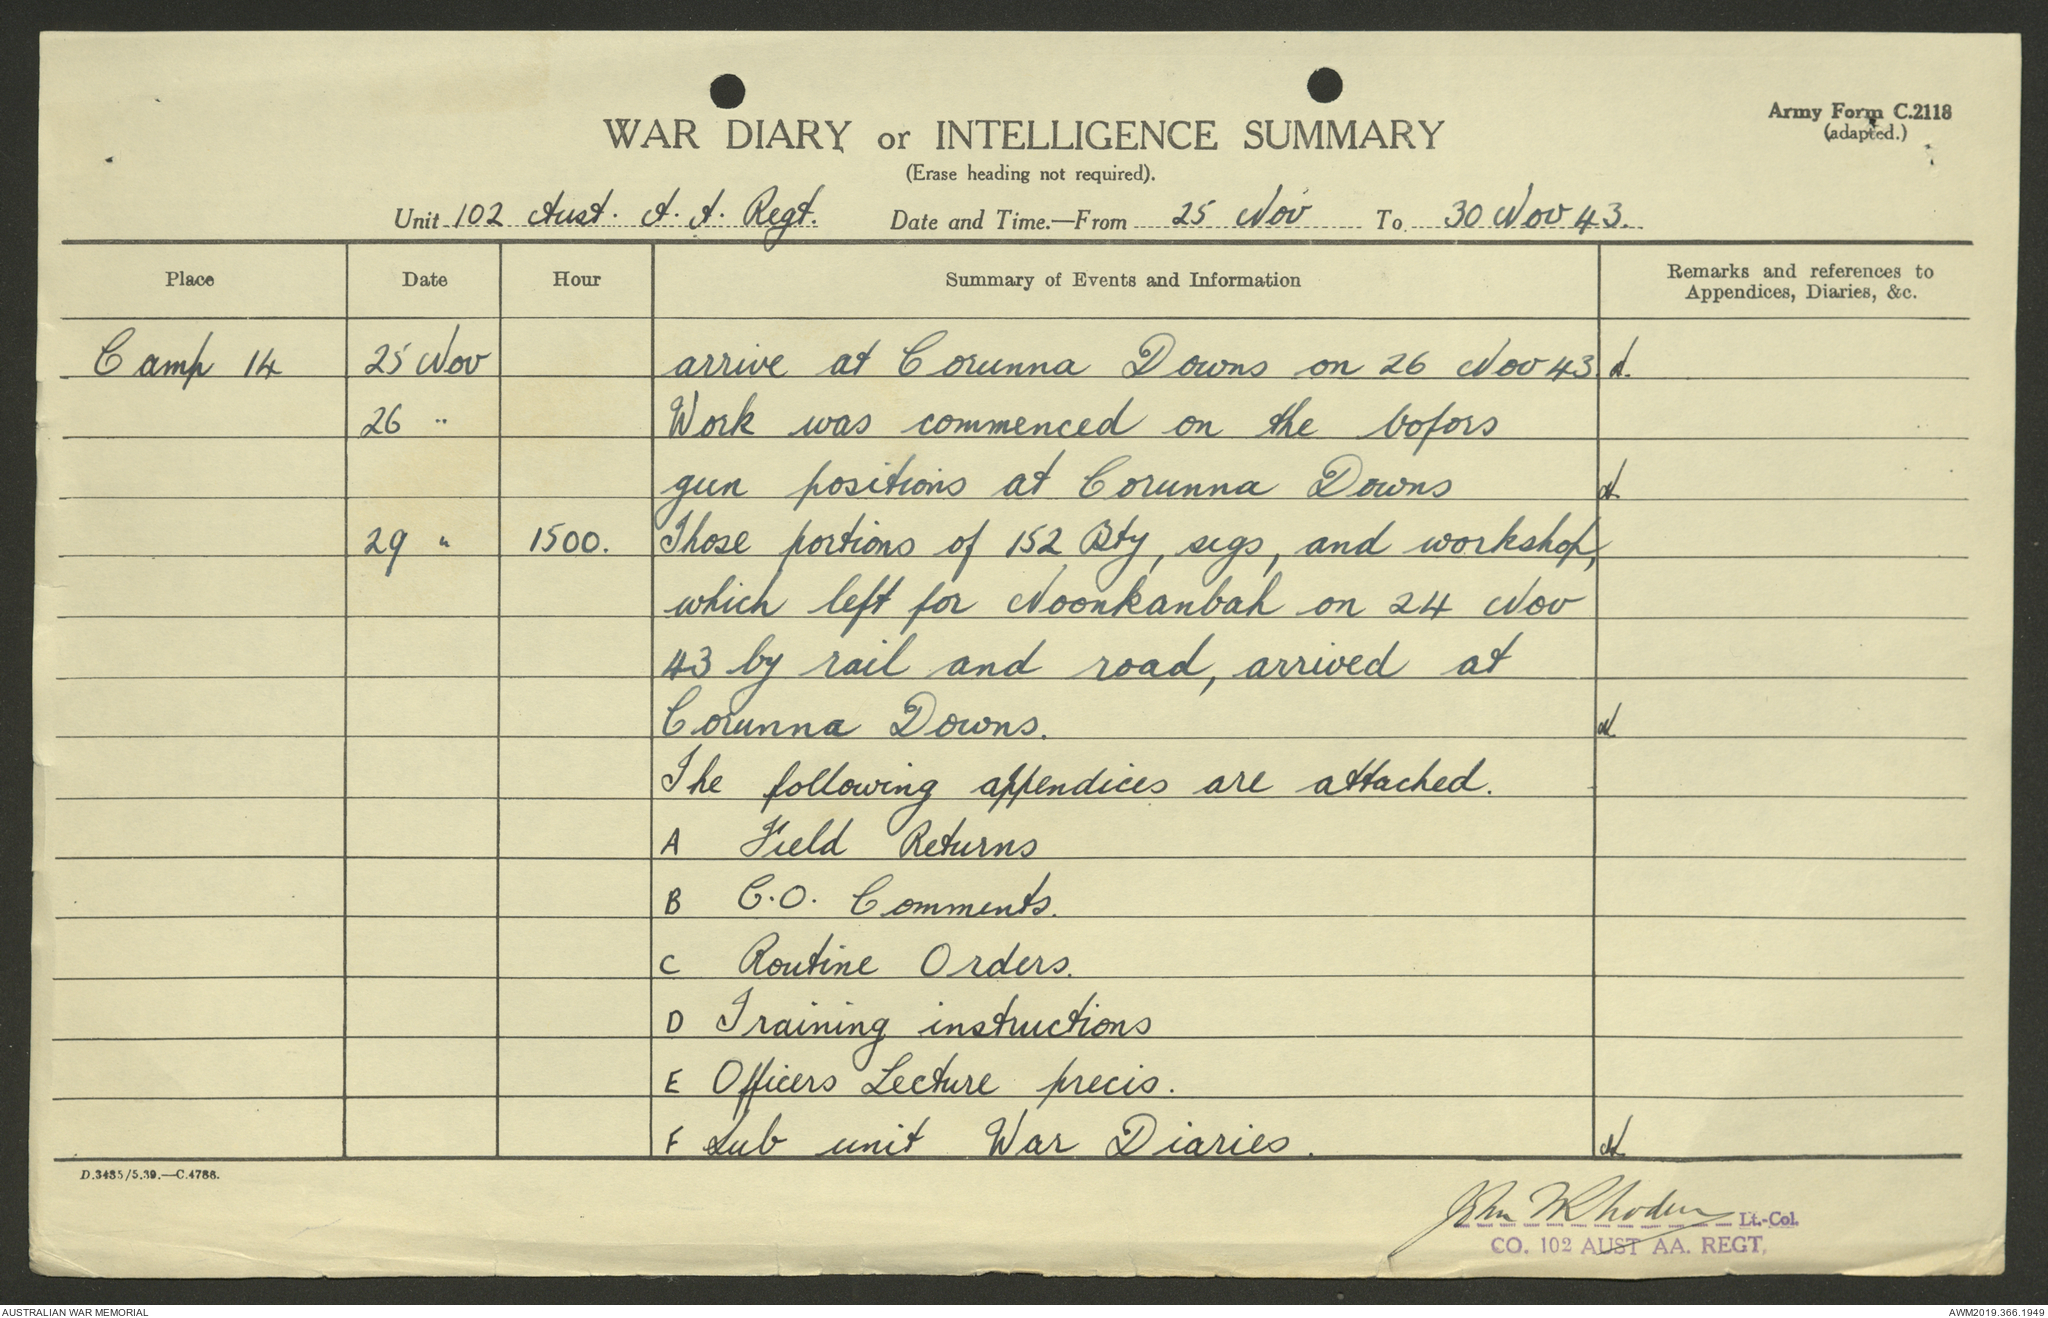 Army Form C.2118
(adapted.)
WAR DIARY or INTELLIGENCE SUMMARY
(Erase heading not required).
Unit 102 Aust. A.A. Regt. Date and Time.—From 25 Nov To 30 Nov 43.
Place Date Hour Summary of Events and Information Remarks and references to
Appendices, Diaries, &c.
Camp 14 25 Nov arrive at Corunna Downs on 26 Nov 43
26 " Work was commenced on the bofors
gun positions at Corunna Downs
29 " 1500. Those portions of 152 Bty, sigs, and workshop,
which left for Noonkanbah on 24 Nov
43 by rail and road, arrived at
Corunna Downs.
The following appendices are attached.
A Field Returns
B C.O. Comments.
C Routine Orders.
D Training instructions
E Officers Lecture precis.
F Sub unit War Diaries.
D.3435/5.39.—C.4786.
John Lt.-Col.
CO. 102 AUST AA. REGT.
AUSTRALIAN WAR MEMORIAL AWM2019.366.1949